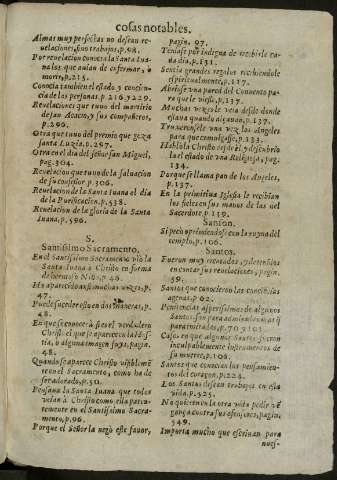 cosas notables.
Almas muy perfectas no desean re-
uelaciones, sino trabajos, p.98.
Por reuelacion conocia la Santa Iua-
na los que auian de enfermar, o
morir, p.215.
Conocia tambien el estado y concien-
cia de las personas. p. 216. y 229.
Reuelaciones que tuuo del martirio
de san Acacio, y sus compañeros,
p.296.
Otra que tuuo del premio que goza
santa Luzia. p.297.
Otra en el dia del señor san Miguel,
pag. 304.
Reuelacion que tuuo de la saluacion
de su confessor. p.306.
Reuelacion de la Santa Iuana el dia
de la Purificacion. p.538.
Reuelacion de la gloria de la Santa
Iuana, p.596.
S.
Santissimo Sacramento.
En el Santissimo Sacramento vio la
Santa Iuana a Christo en forma
de hermoso Niño. p.46.
Ha aparecido assi muchas vezes, p.
47.
Puede suceder esto en dos maneras, p.
48.
En que se conocerà si es el verdadero
Christo el que se aparece en la Hos-
tia, o alguna imagen suya. pagin.
48.
Quando se aparece Christo visiblemẽ-
te en el Sacramento, como ha de
ser adorado, p.50.
Pensaua la Santa Iuana que todos
veian à Christo como ella patẽ-
temente en el Santissimo Sacra-
mento, p.96.
Porque el Señor la negò este fauor,
pagin. 97.
Teniase por indigna de recibirle ca-
da dia, p.131.
Sentia grandes regalos recibiendole
espiritualmente, p.117.
Abriose vna pared del Conuento pa-
ra que le viesse, p.137.
Muchas vezes le veia desde donde
estaua quando alçauan, p.137.
Truxeronsele vna vez los Angeles
para que comulgasse, p.133.
Hablola Christo desde el, y descubrio
la el estado de vna Religiosa, pag.
134.
Porque se llama pan de los Angeles,
p.137.
En la primitiua Iglesia le recibian
los fieles en sus manos de las del
Sacerdote. p.139.
Sanson.
Si pecò oprimiendose con la ruyna del
templo, p.106.
Santos.
Fueron muy recatados, y detenidos
en contar sus reuelaciones, pagin.
59.
Santos que conocieron las conciẽcias
agenas, p.62.
Penitencias asperissimas de algunos
Santos son para admiradas, mas q̃
para imitadas, p.70.
Casos en que algunos Santos fueron
inculpablemente instrumentos de
su muerte, p.106.
Santos que conocian los pensamien-
tos del coraçon, p.224.
Los Santos desean trabajos en esta
vida, p.325.
No quieren en la otra vida pedir vẽ-
gança contra sus ofensores, pagin.
549.
Importa mucho que escriuan para
nues-